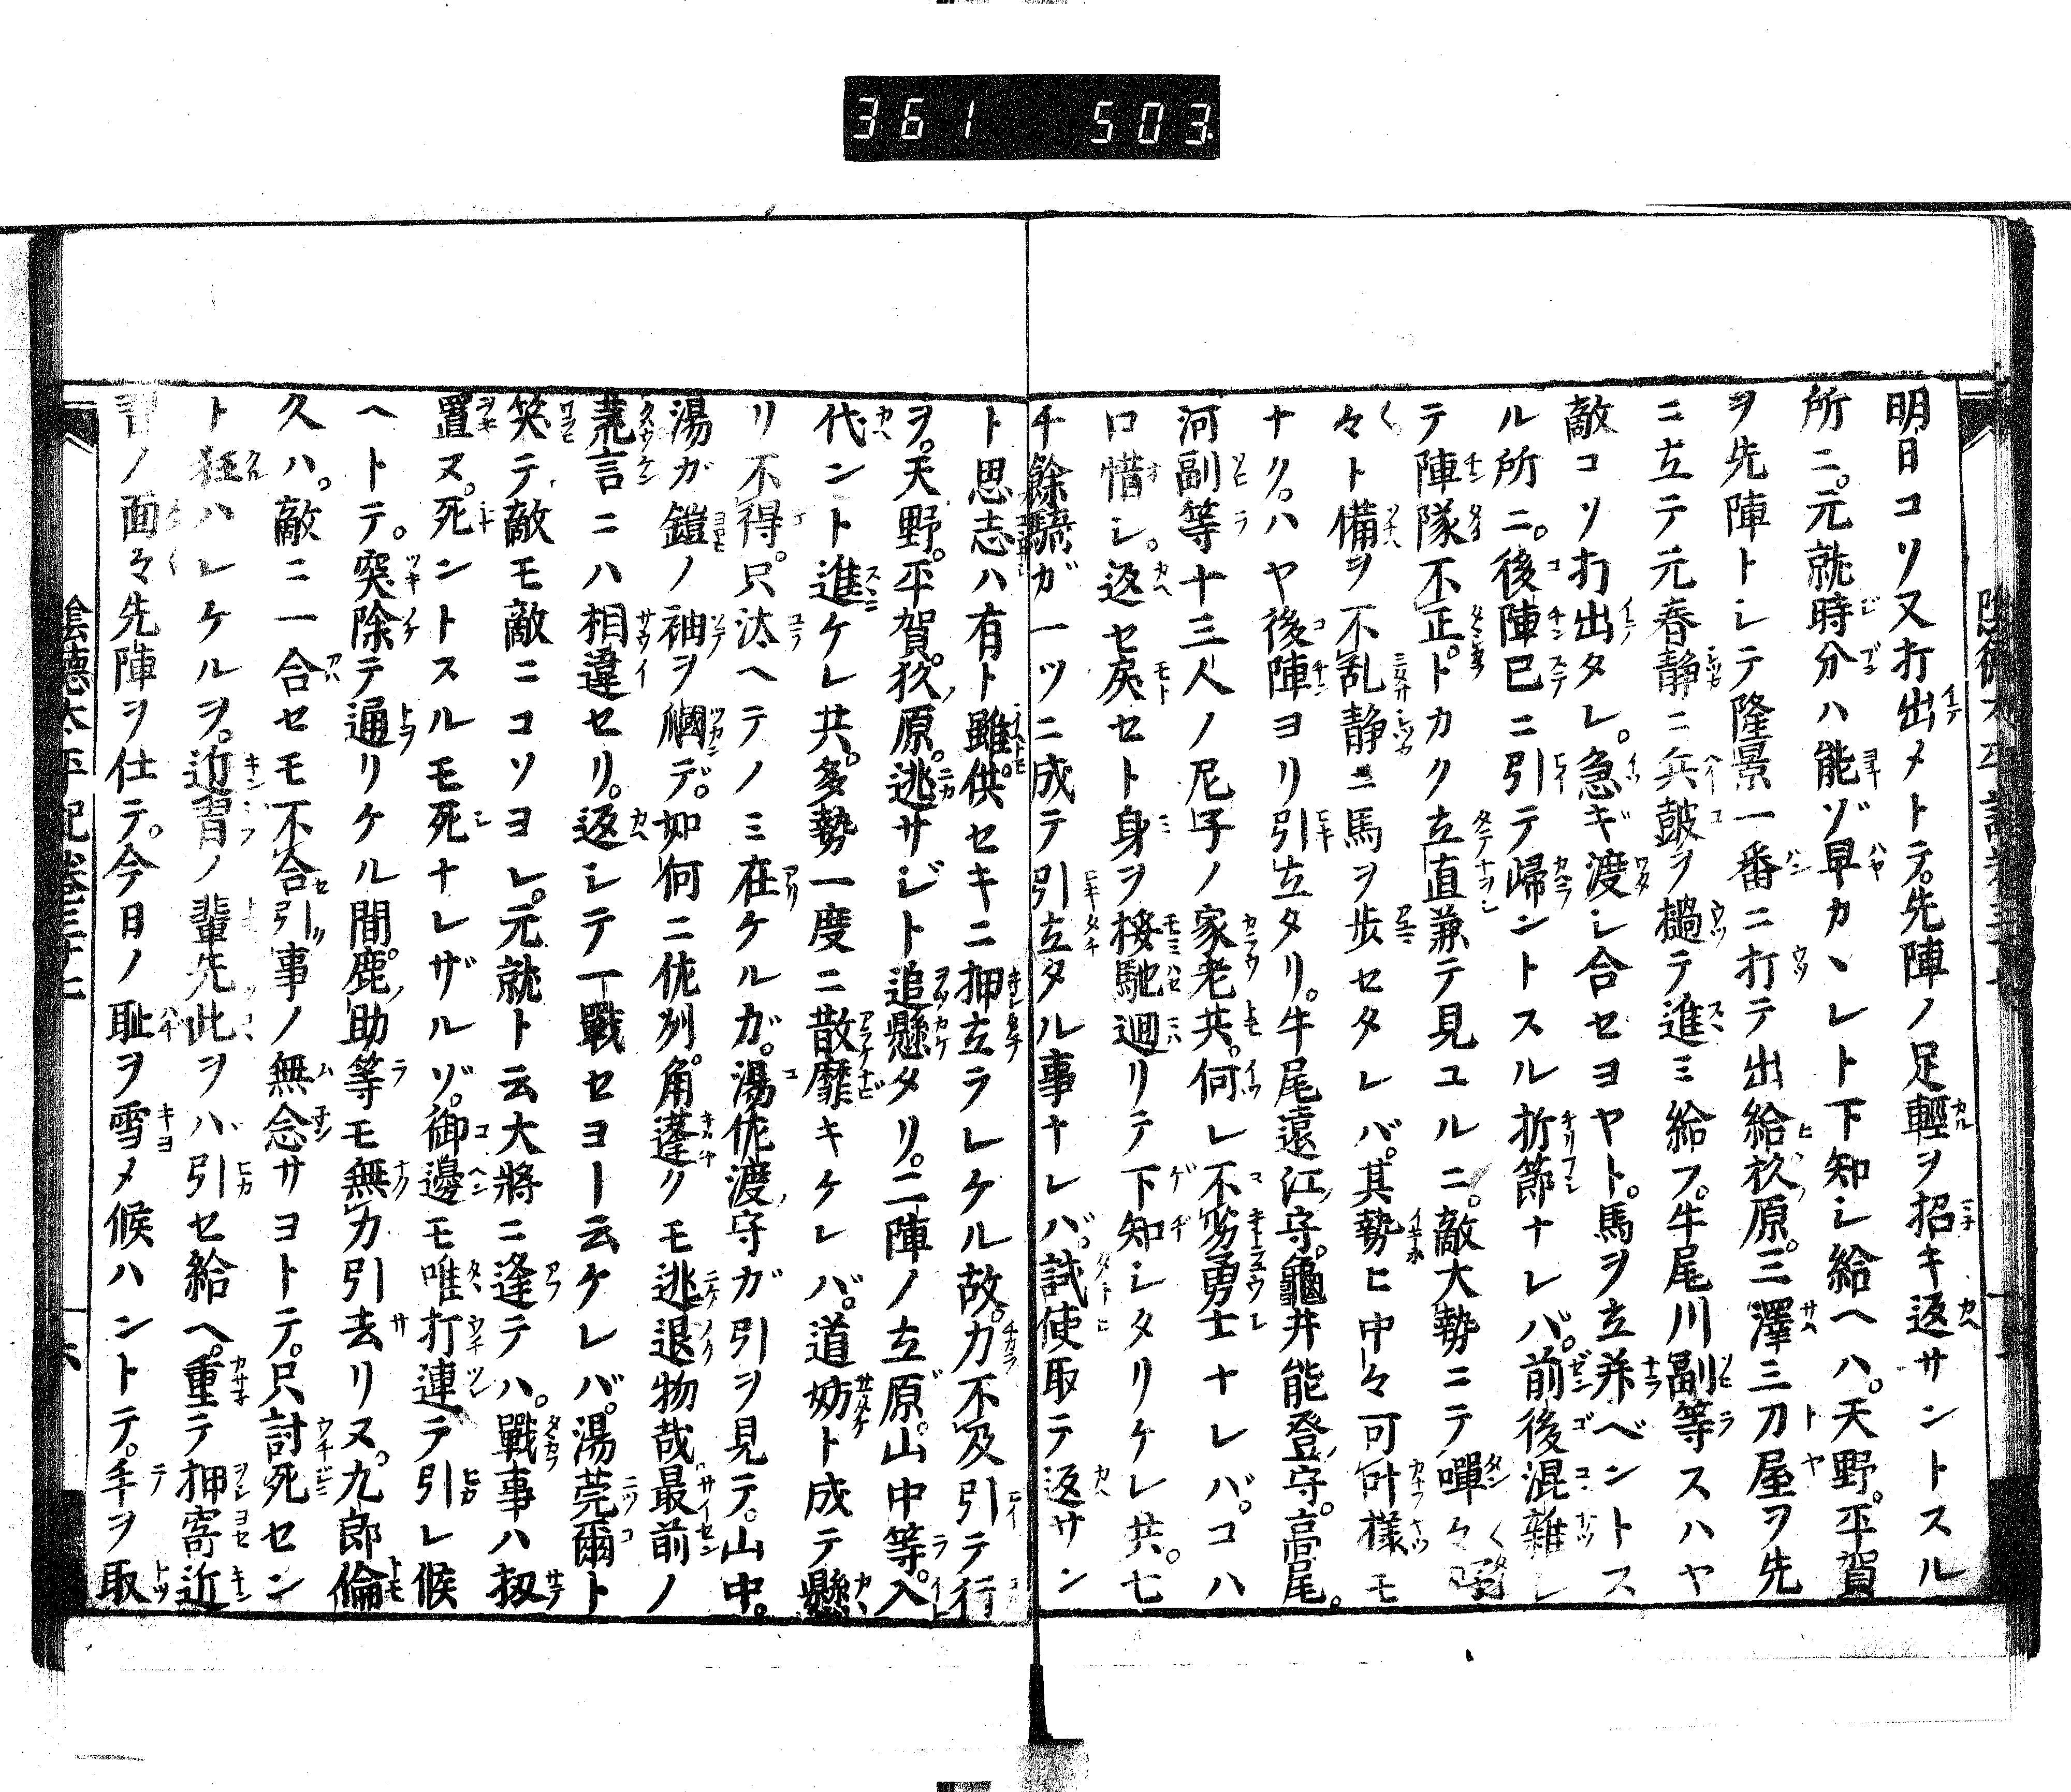 361 503
明日コソ又打出メトテ。先陣ノ足輕ヲ招キ返サントスル
所ニ。元就時分ハ能ゾ早カヽレト下知シ給ヘハ。天野。平賀
ヲ先陣トシテ隆景一番ニ打テ出給ヒ。杦原。三澤三刀屋ヲ先
ニ立テ元春靜ニ兵皷ヲ撾テ進ミ給フ。牛尾川副等スハヤ
敵コソ打出タレ。急ギ渡シ合セヨヤト。馬ヲ立并ベントス
ル所ニ。後陣已ニ引テ歸ントスル折節ナレバ。前後混雜シ
テ陣隊不正。トカク立直兼テ見ユルニ。敵大勢ニテ嘽々
々ト備ヲ不乱静ニ馬ヲ歩セタレバ。其勢ヒ中々可叶樣モ
ナク。ハヤ後陣ヨリ引立タリ。牛尾遠江守。龜井能登守。高尾。
河副等十三人ノ尼子ノ家老共。何レ不劣勇士ナレバ。コハ
口惜シ。返セ戻セト身ヲ揉馳廻リテ下知シタリケレ共。七
千餘騎ガ一ツニ成テ引立タル事ナレバ。試使取テ返サン
ト思志ハ有ト雖供。セキニ押立ラレケル故。力不及引テ行
ヲ。天野。平賀。杦原。逃サジト追懸タリ。二陣ノ立原。山中等。入
代ント進ケレ共。多勢一度ニ散靡キケレバ。道妨ト成テ懸
リ不得。只汰ヘテノミ在ケルガ。湯佐渡守ガ引ヲ見テ。山中。
湯ガ鎧ノ袖ヲ摑デ。如何ニ佐刕。角蓬クモ逃退物哉最前ノ
荒言ニハ相違セリ。返シテ一戰セヨト云ケレバ。湯莞爾ト
笑テ敵モ敵ニコソヨレ。元就ト云大將ニ逢テハ。戰事ハ扨
置ヌ。死ントスルモ死ナレザルゾ。御邊モ唯打連テ引レ候
ヘトテ。突除テ通リケル間。鹿助等モ無力引去リヌ。九郎倫
久ハ。敵ニ一合セモ不合引事ノ無念サヨトテ。只討死セン
ト狂ハレケルヲ。近習ノ輩先此ヲハ引セ給ヘ。重テ押寄近
習ノ面々先陣ヲ仕テ。今日ノ恥ヲ雪メ候ハントテ。手ヲ取
陰德太平記卷三十